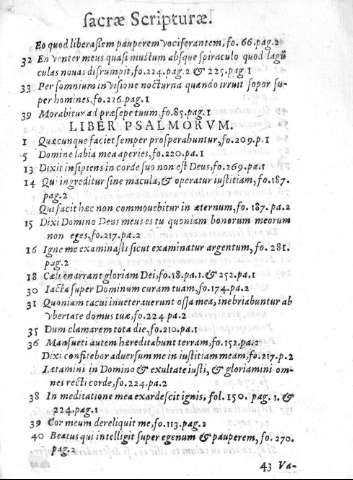 sacræ Scripturæ.
Eo quod liberassem pauperem vociferantem, fo. 66. pag. 2
32 En venter meus quasi mustum absque spiraculo quod lagũ
culas nouas disrumpit, fo. 224. pag. 2 & 225. pag 1
33 Per somnium in visione nocturna quando irruit sopor su-
per homines, fo. 216. pag. 1
39 Morabitur ad præsepe tuum, fo. 85. pag. 1
LIBER PSALMORVM.
1 Quæcunque faciet semper prosperabuntur, fo. 209. p. 1
5 Domine labia mea aperies, fo. 220. pa. 1
13 Dixit insipiens in corde suo non est Deus, fo. 269. pa. 1
14 Qui ingreditur sine macula, & operatur iustitiam, fo. 187.
pag. 2
Qui facit hæc non commouebitur in æternum, fo. 187. pa. 2
15 Dixi Domino Deus meus es tu quoniam bonorum meorum
non eges, fo. 217. pa. 2
16 Igne me examinasti sicut examinatur argentum, fo. 281.
pag. 2
18 Cæli enarrant gloriam Dei, fo. 18. pa. 1. & 252. pa. 1
30 Iacta super Dominum curam tuam, fo. 174. pa. 2
31 Quoniam tacui inueterauerunt ossa mea, inebriabuntur ab
vbertate domus tuæ, fo. 224 pa. 2
35 Dum clamarem tota die, fo. 210. pa. 1
36 Mansueti autem hereditabunt terram, fo. 152. pa. 2
Dixi confitebor aduersum me in iustitiam meam, fo. 217. p. 2
Lætamini in Domino & exultate iusti, & gloriamini om-
nes recti corde, fo. 224. pa. 2
38 In meditatione mea exardescit ignis, fol. 150. pag. 1. &
224. pag. 1
39 Cor meum dereliquit me, fo. 113. pag. 2
40 Beatus qui intelligit super egenum & pauperem, fo. 270.
pag. 2
43 Va-